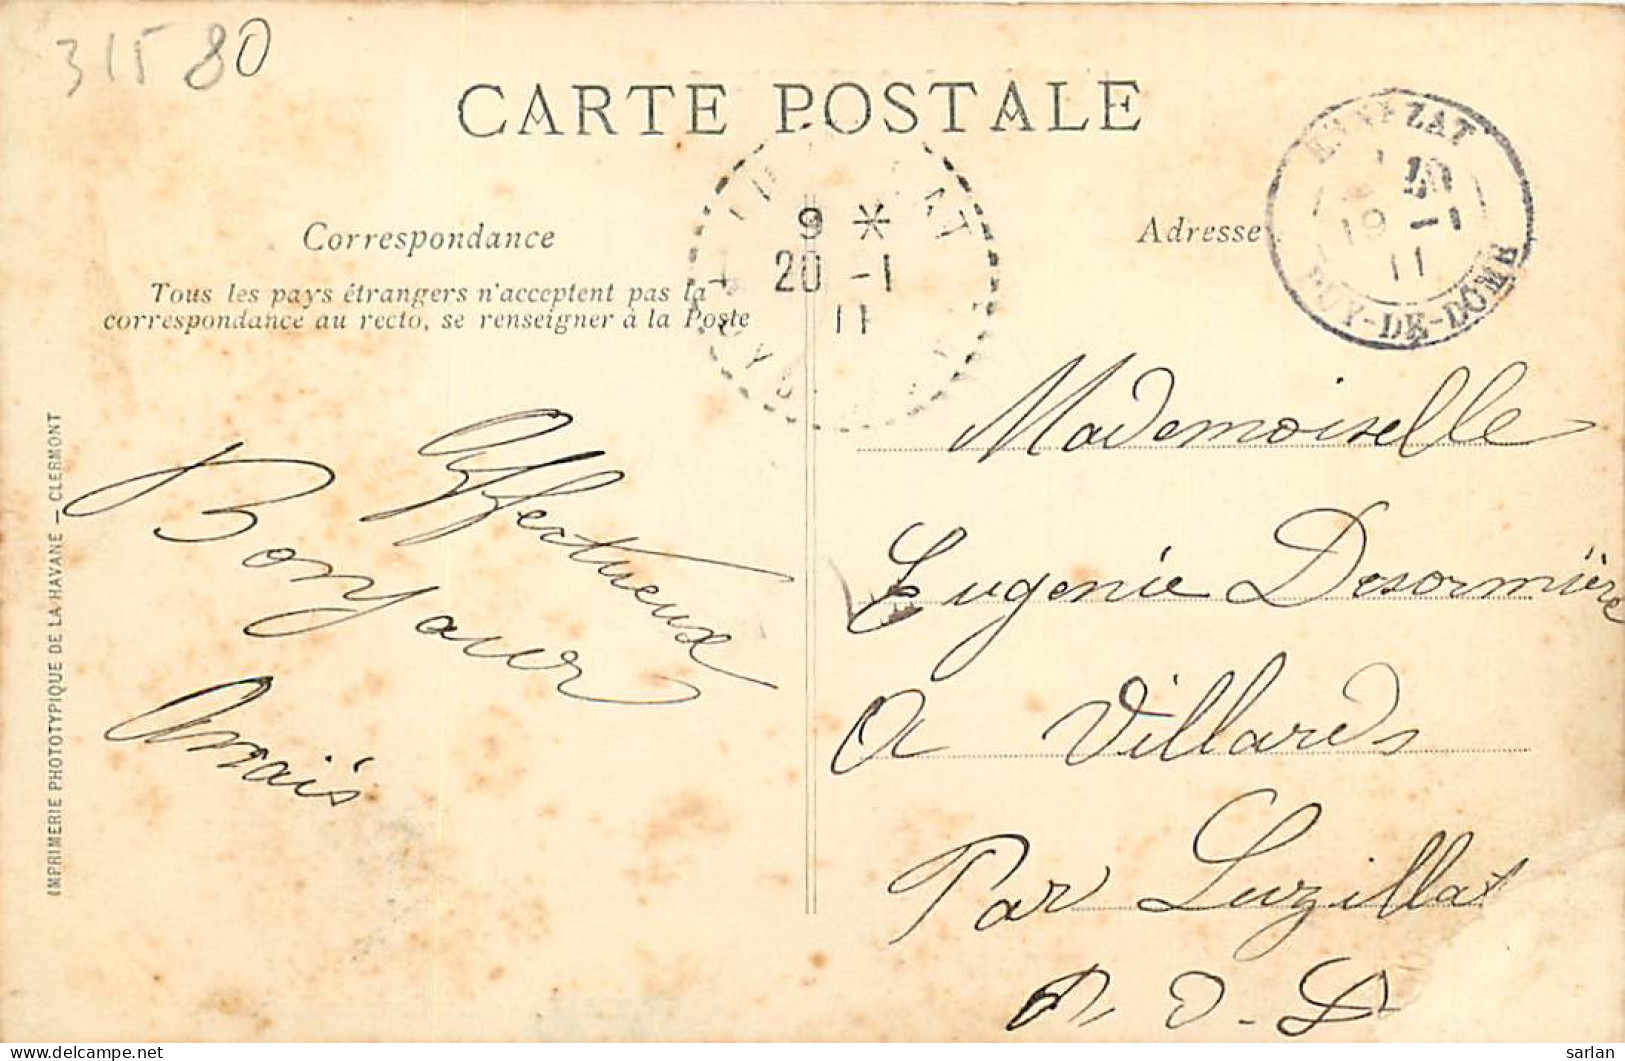 31580
CARTE POSTALE
Correspondance
Tous les pays étrangers n'acceptent pas la
correspondance au recto, se renseigner à la Poste
9 *
20 -1
11
Adresse
ENNEZAT
19 -1
11
PUY-DE-DOME
Affectueux
Bonjour
Anaïs
Mademoiselle
Eugenie Desormière
A Villards
Par Luzillat
P. D. D
IMPRIMERIE PHOTOTYPIQUE DE LA HAVANE — CLERMONT
sarlan